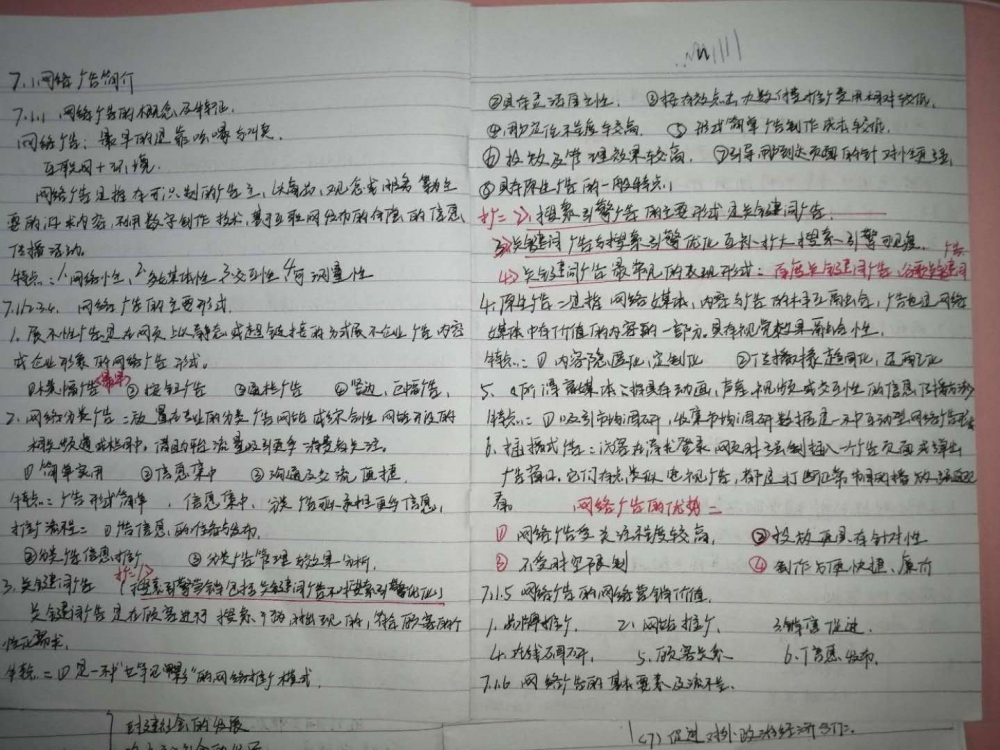 7.1网络广告简介
7.1.1 网络广告的概念及特征.
网络广告: 最早的是靠吆喝
互联网+环境.
网络广告是指在可识别的广告主, 以商品、观念或服务等为主
要的诉求内容, 利用数字制作技术, 基于互联网络的信息的信息
传播活动.
特点: 1.网络性, 2.多媒体性 3.交互性 4.可测量性
7.1.2-3.4. 网络广告的主要形式.
1.展示性广告是在网页上以静态或超链接的方式展示企业广告内容
或企业形象的网络广告形式.
①横幅广告 最早 ②按钮广告 ③通栏广告 ④竖边、巨幅广告.
2.网络分类广告二般是在专业的分类广告网站或综合性网站开设的
相关频道或栏目中,
①简单实用 ②信息集中 ③沟通及交流便捷.
特点: 广告形式简单, 信息集中,
推广流程: ①广告信息的准备与发布,
②分类广告信息推广 ③分类广告管理与效果分析,
扩=1>
3.关键词广告 (搜索引擎营销包括关键词广告和搜索引擎优化)
关键词广告是在顾客进行搜索时弹出现的, 符合顾客的个
性化需求.
特点: ①是一种“立竿见影”的网络推广模式.
时建社会的发展
②具有灵活自主性. ③按有效点击次数付费推广费用相对较低.
④用户定位程度较高. ⑤形式简单广告制作成本较低.
⑥投放及管理效果较高. ⑦引导用户到达页面的针对性更强.
⑧具有原生广告的一般特点;
扩=2.搜索引擎广告的主要形式是关键词广告.
3>关键词广告与搜索引擎优化互补扩大搜索引擎可见度. 广告
4>关键词广告最常见的表现形式: 百度关键词广告、谷歌关键词
4.原生广告=是指网络媒体, 内容与广告的相互融合, 广告也是网络
媒体中有价值的内容的一部分. 具有视觉效果融合性.
特点: ①内容隐匿化, 定制化 ②传播对象趋同化, 适配化
5. 所谓富媒体: 指具有动画, 声音视频或交互性的信息传播方法
特点: ①吸引市场调研, 收集市场调研数据是一种互动型网络广告形式
6.插播式广告: 访客在请求登录网页时强制插入一个广告页面或弹出
广告窗口, 它们有点类似电视广告, 都是打断正常节目的播放强迫观
看 网络广告的优势=
① 网络广告受关注程度较高, ②投放更具有针对性
③ 不受时空限制 ④制作方便快捷、廉价
7.1.5网络广告的网络营销价值.
1.品牌推广 2.网站推广. 3.销售促进.
4.在线调研. 5.顾客关系 6.信息发布.
7.1.6 网络广告的基本要素及流程.
(7) 促进对外政治经济合作.